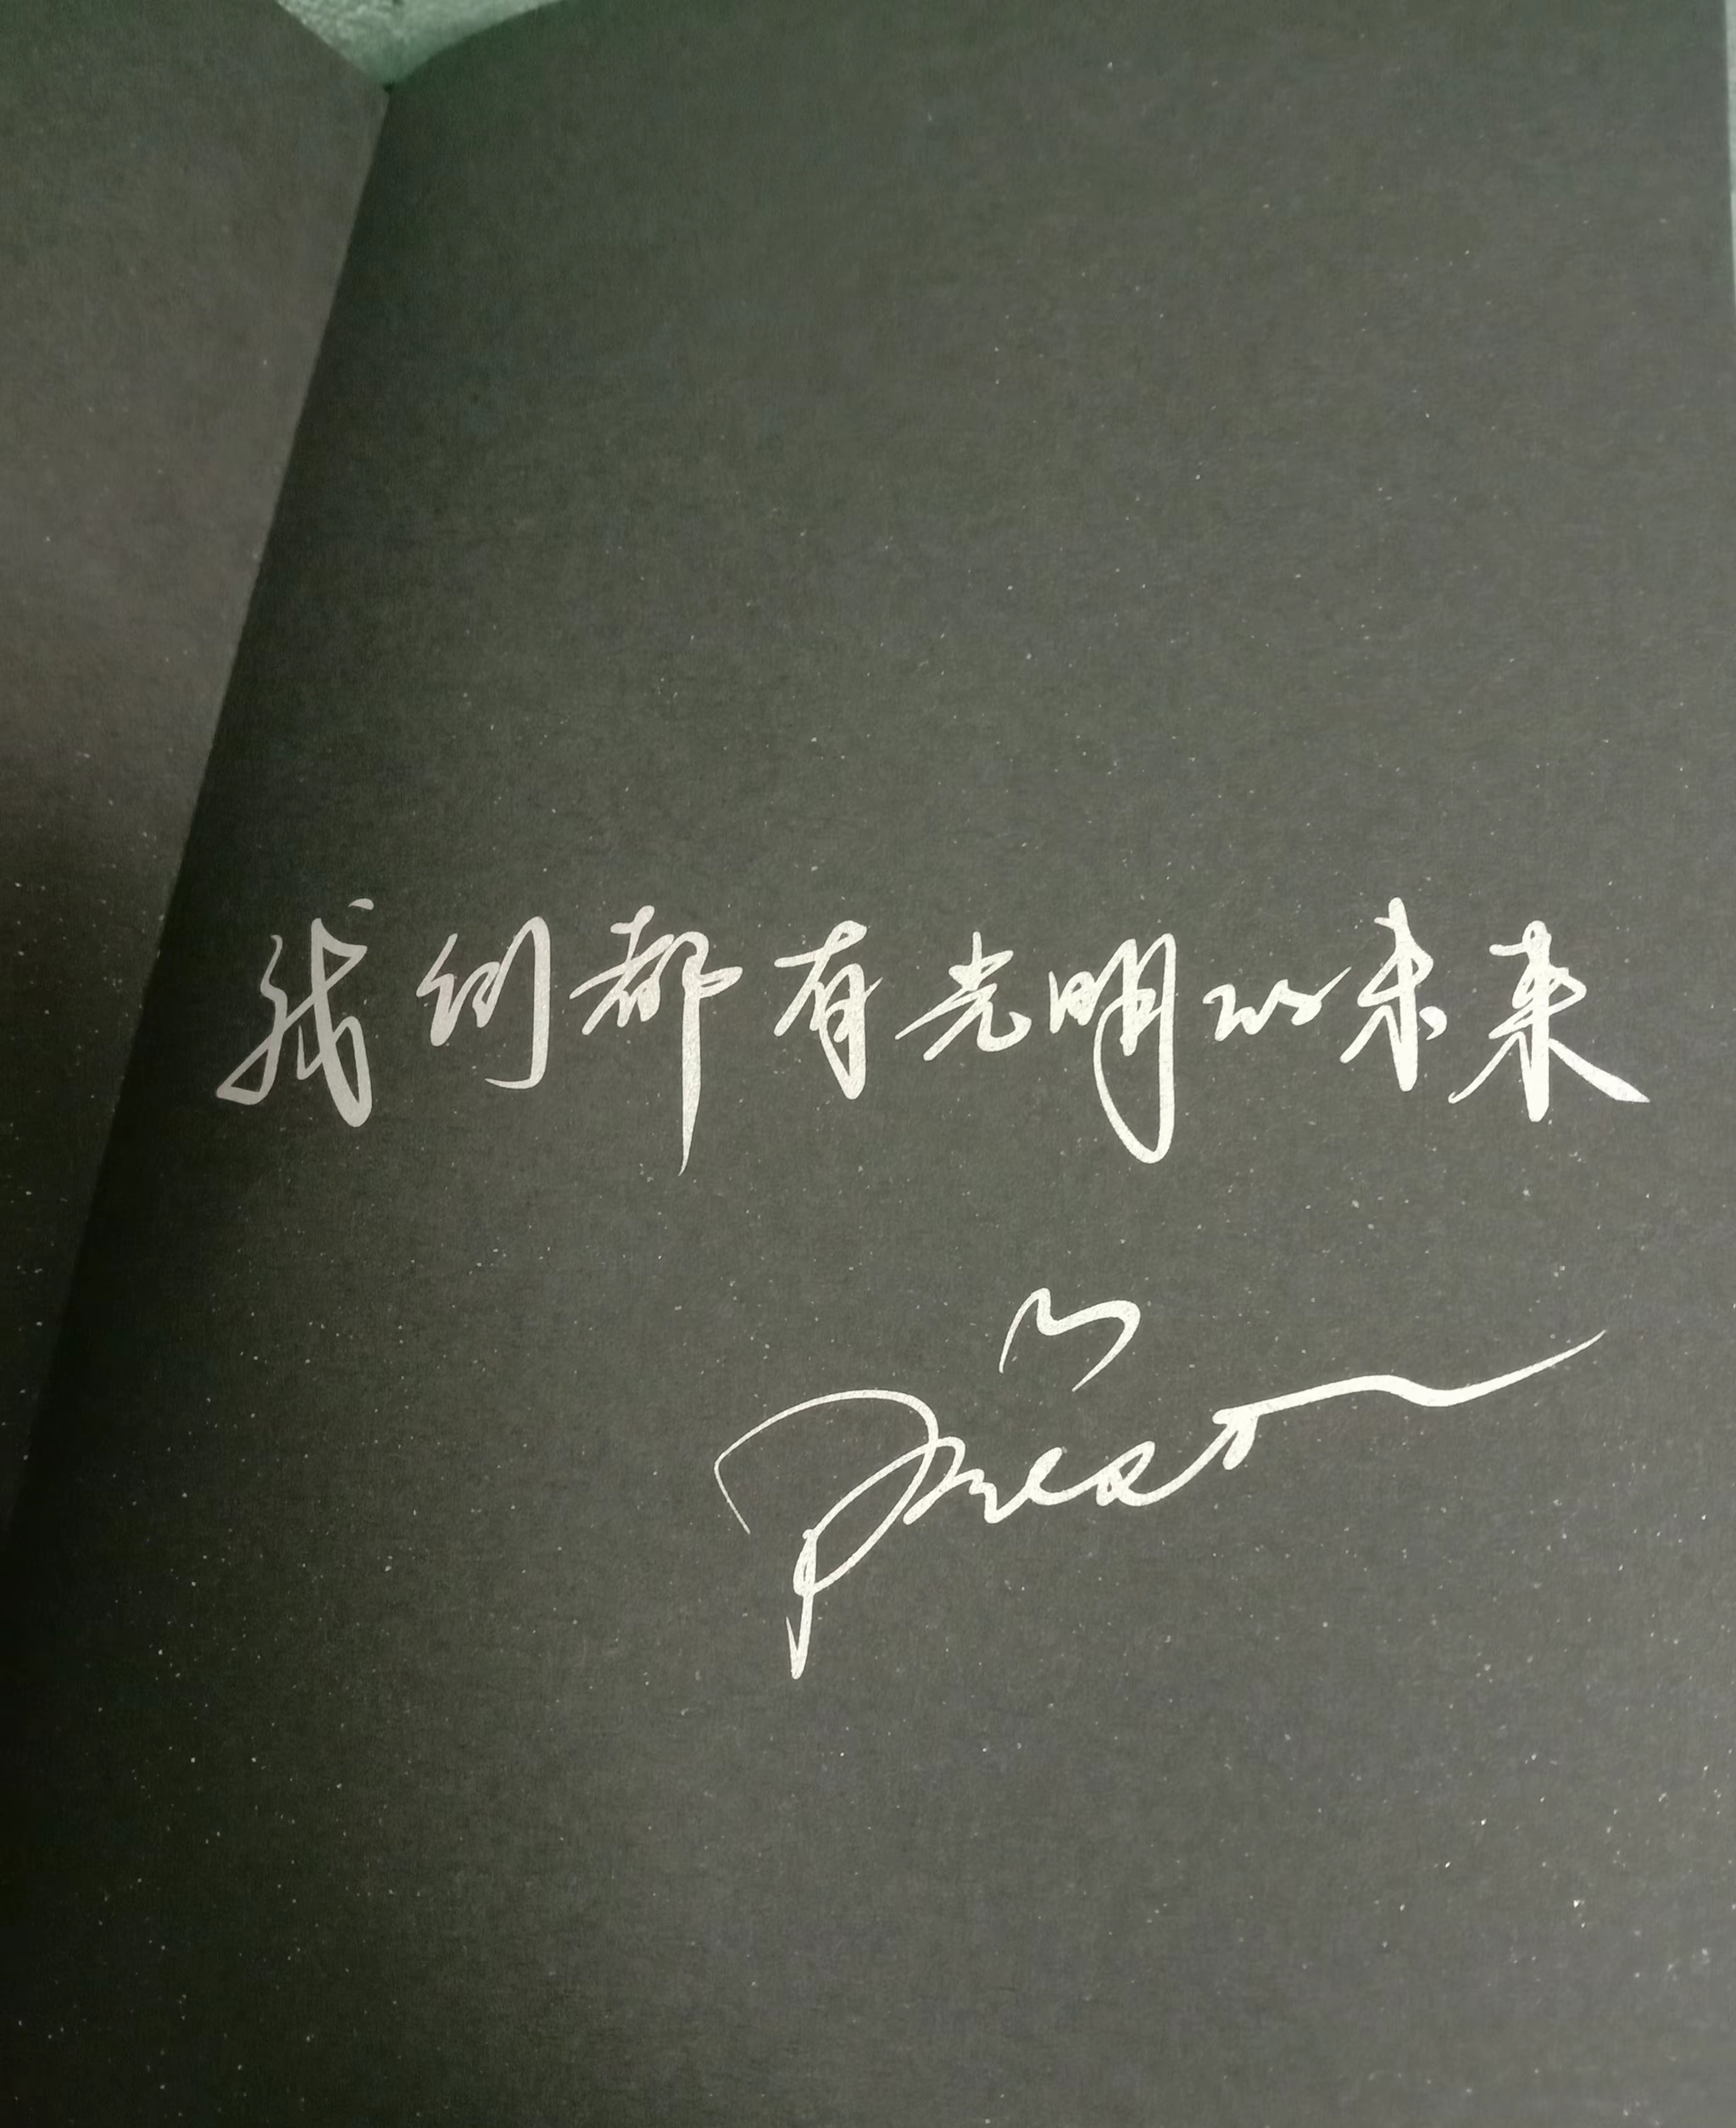 我们都有光明的未来